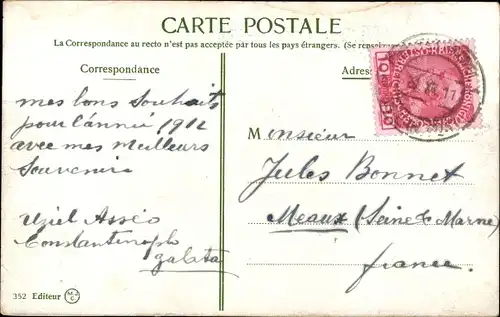 CARTE POSTALE
La Correspondance au recto n'est pas acceptée par tous les pays étrangers. (Se renseigner
Correspondance
Adres
mes bons Souhaits
pour l'année 1912
avec mes Meilleurs
Souvenirs
Uziel Asséo
Constantinople
galata
Monsieur
Jules Bonnet
Meaux (Seine & Marne)
france.
352 Editeur M.J.C